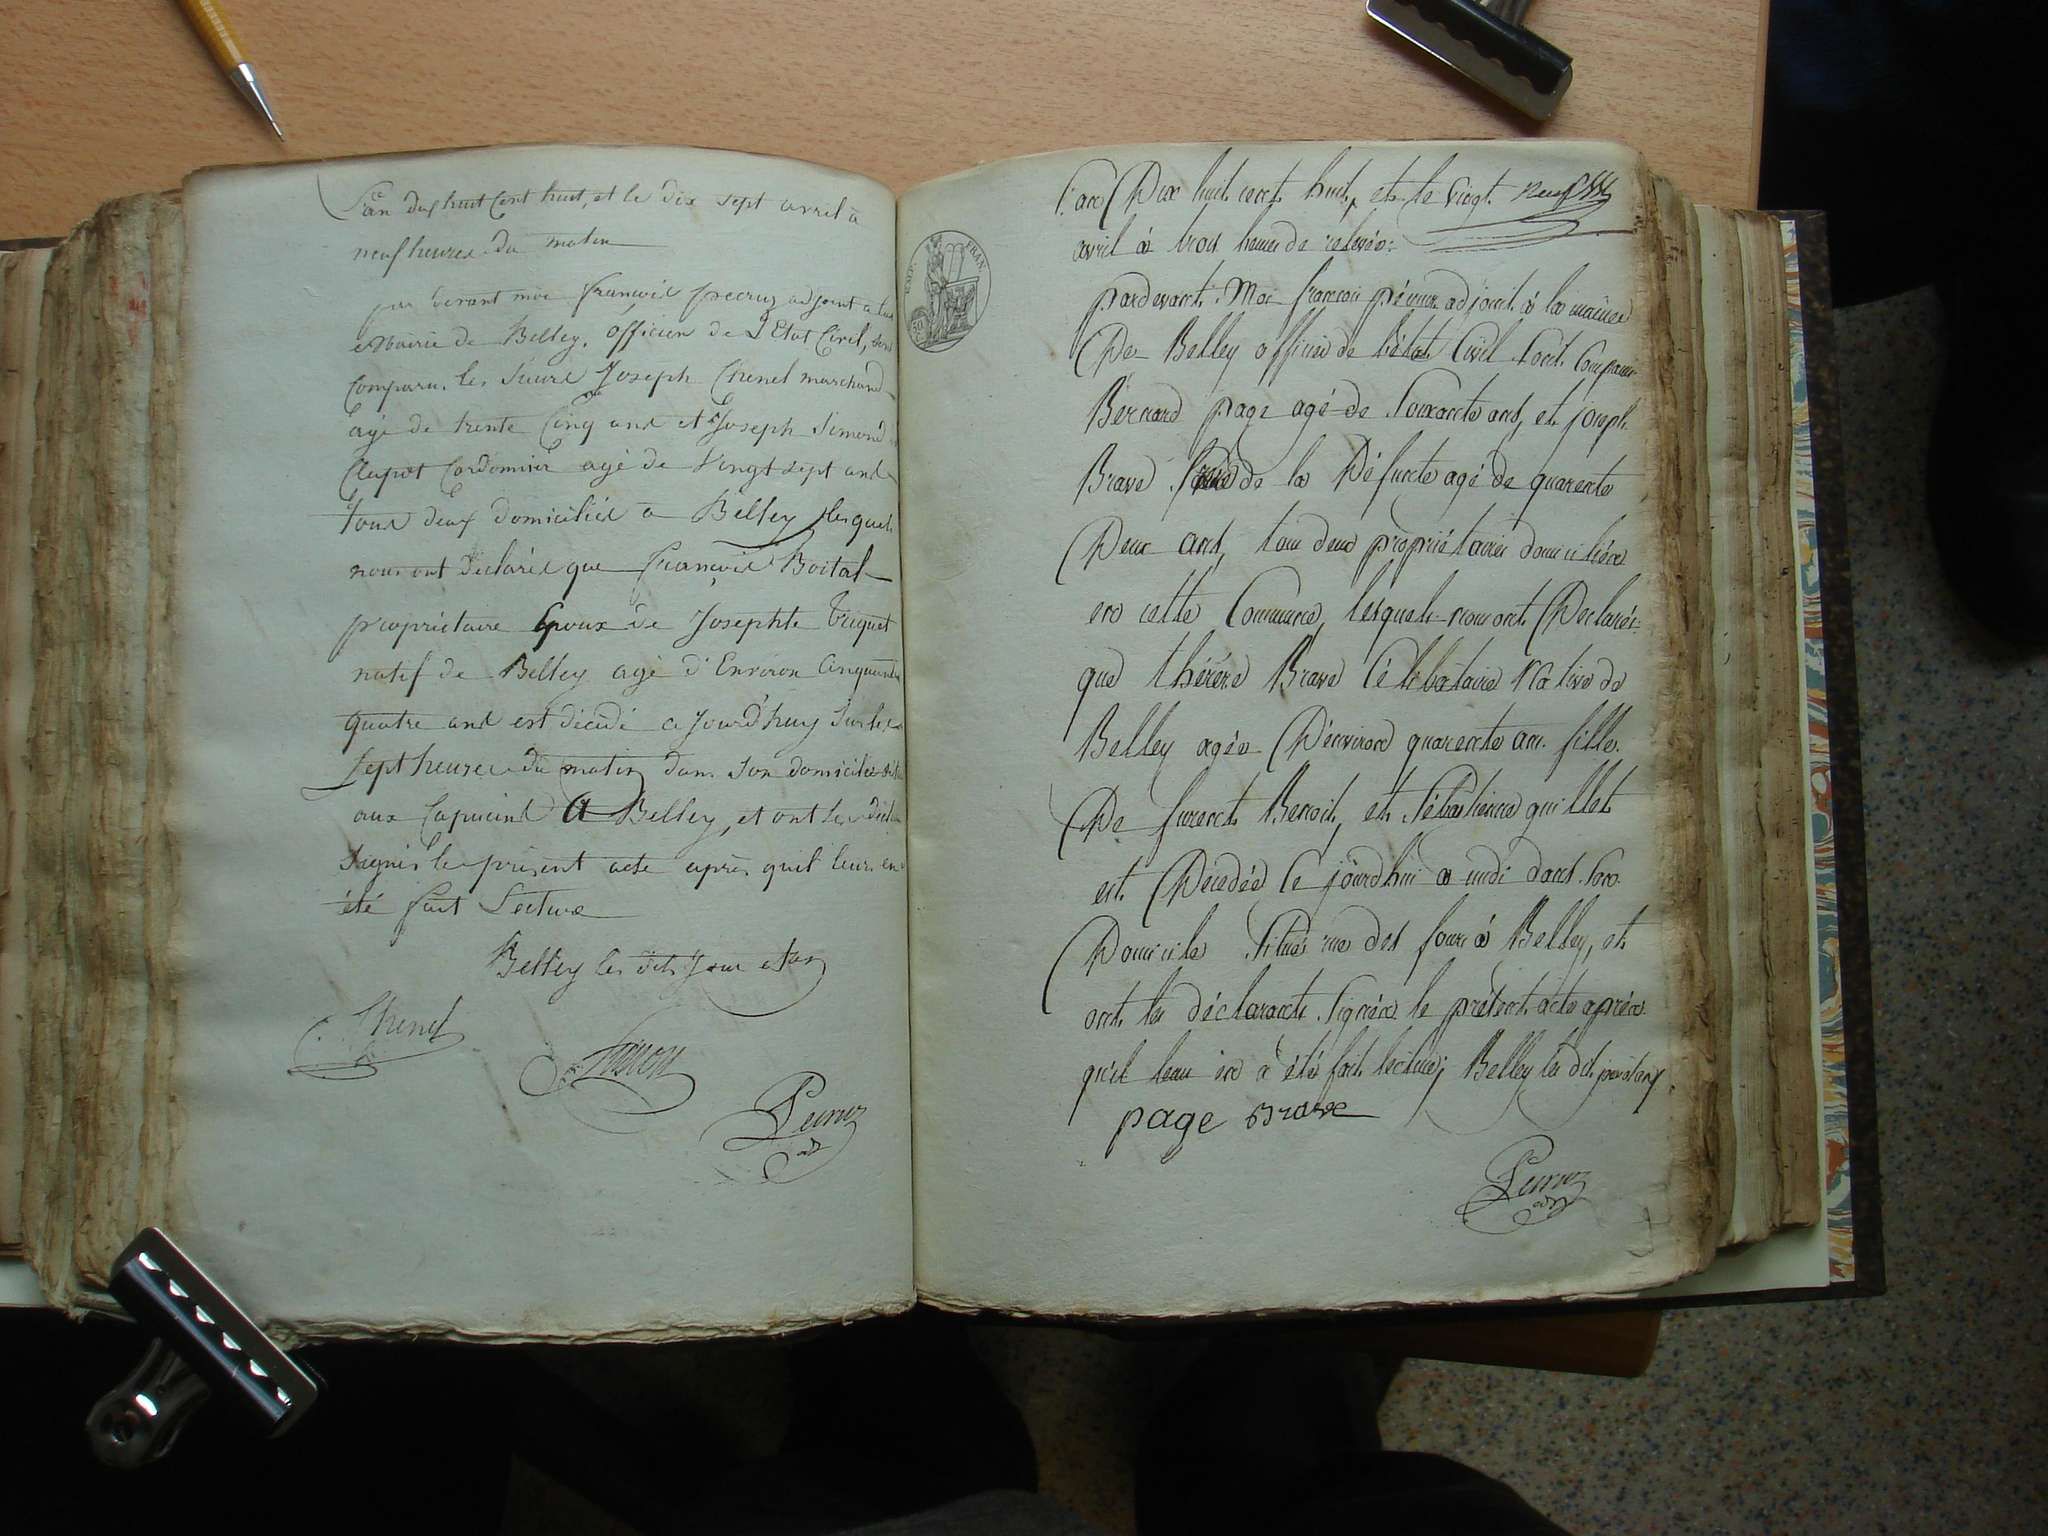 L'an dix huit Cent huit, et le dix sept avril à
neuf heures du matin
par devant moi françois pecruz adjoint a la
Mairie de Belley, officier de L'Etat Civil, sont
Comparu les Sieurs Joseph Chenel marchand
âgé de trente Cinq ans et Joseph Simond
Clapot Cordonnier agé de Vingt sept ans
tous deux domiciliés a Belley lesquels
nous ont declarés que françois Boital
propriétaire Epoux de Josephte
natif de Belley agé d'Environ Cinquante
quatre ans est décédé a Jourd'huy Sur les
sept heures du matin dans Son domicile
aux Capucins A Belley, et ont les
Signés le présent acte aprés quil leurs en
été fait Lecture
Belley les dits Jour et an
Chenel
Simon
Pecruz
adj
EMP. FRAN
50
L'an Dix huit cent huit, et le vingt neuf
avril à trois heures de relevée.
pardevant Moi françois pécruz adjoint à la mairie
De Belley officier de l'état Civil Sont Comparu
Bernard page agé de Soixante ans, et joseph
Brave de la Défunte agé de quarente
Deux ans, tous deux propriétaires domiciliés
en cette Commune, lesquels nous ont Déclarés
que thérése Brave Célibataire Native de
Belley agée D'environ quarente ans fille
De furent Benoit, et Sébastienne guillet
est Décedée Ce jourd'hui à midi dans Son
Domicile Situés rue des fours à Belley, et
ont les déclarants Signés le présent acte aprés
qu'il leur en a été fait lecture, Belley les dits jour et an
page Brave
Pecruz
adj